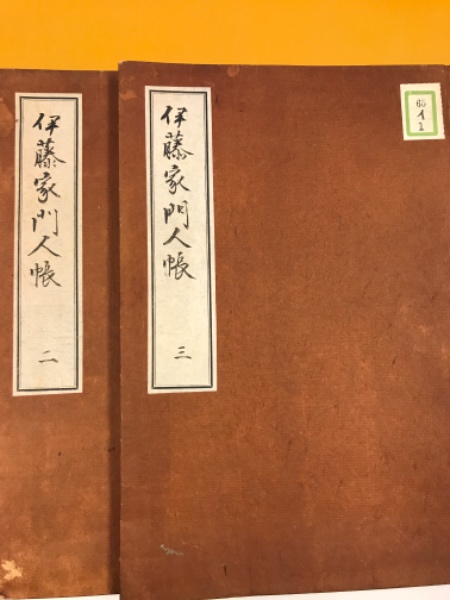 伊藤家門人帳
三
伊藤家門人帳
二